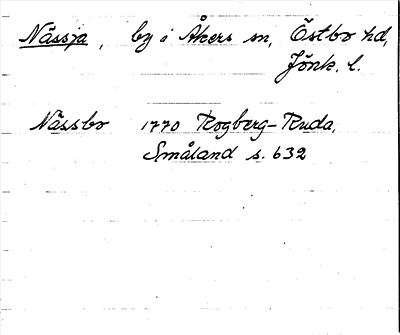 Nässja, by i Åkers sn, Östbo hd,
Jönk. l.
Nässbo 1770 Rogberg-Ruda,
Småland s. 632